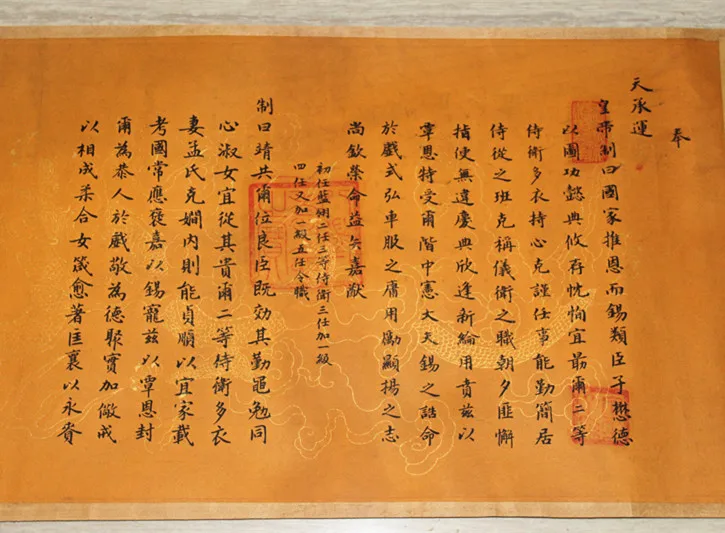 奉
天承運
皇帝制曰國家推恩而錫類臣子懋德
以圖功懿典攸存忱恂宜勗爾二等
侍衛多衣持心克謹任事能勤簡居
侍從之班克稱儀衛之職朝夕匪懈
指使無違慶典欣逢新綸用賁茲以
覃恩特受爾階中憲大夫錫之誥命
於戲式弘車服之庸用勵顯揚之志
尚欽榮命益矢嘉猷
初任藍翎二任三等侍衛三任加一級
四任又加一級五任今職
制曰靖共爾位良臣既効其勤黽勉同
心淑女宜從其貴爾二等侍衛多衣
妻孟氏克嫻內則能貞順以宜家載
考國常應褒嘉以錫寵茲以覃恩封
爾為恭人於戲敬為德聚實加儆戒
以相成柔合女箴愈著匡襄以永賁